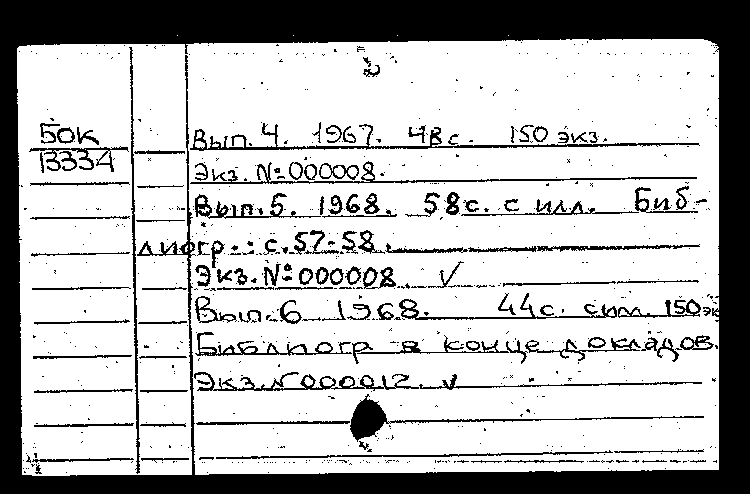 2
БОК
13334
Вып. 4. 1967. 48 с. 150 экз.
Экз. № 000008.
Вып. 5. 1968. 58с. с илл. Биб-
лиогр.: с. 57-58.
Экз. № 000008. ✓
Вып. 6 1968. 44с. с ил. 150 эк
Библиогр в конце докладов.
Экз. № 000012. ✓